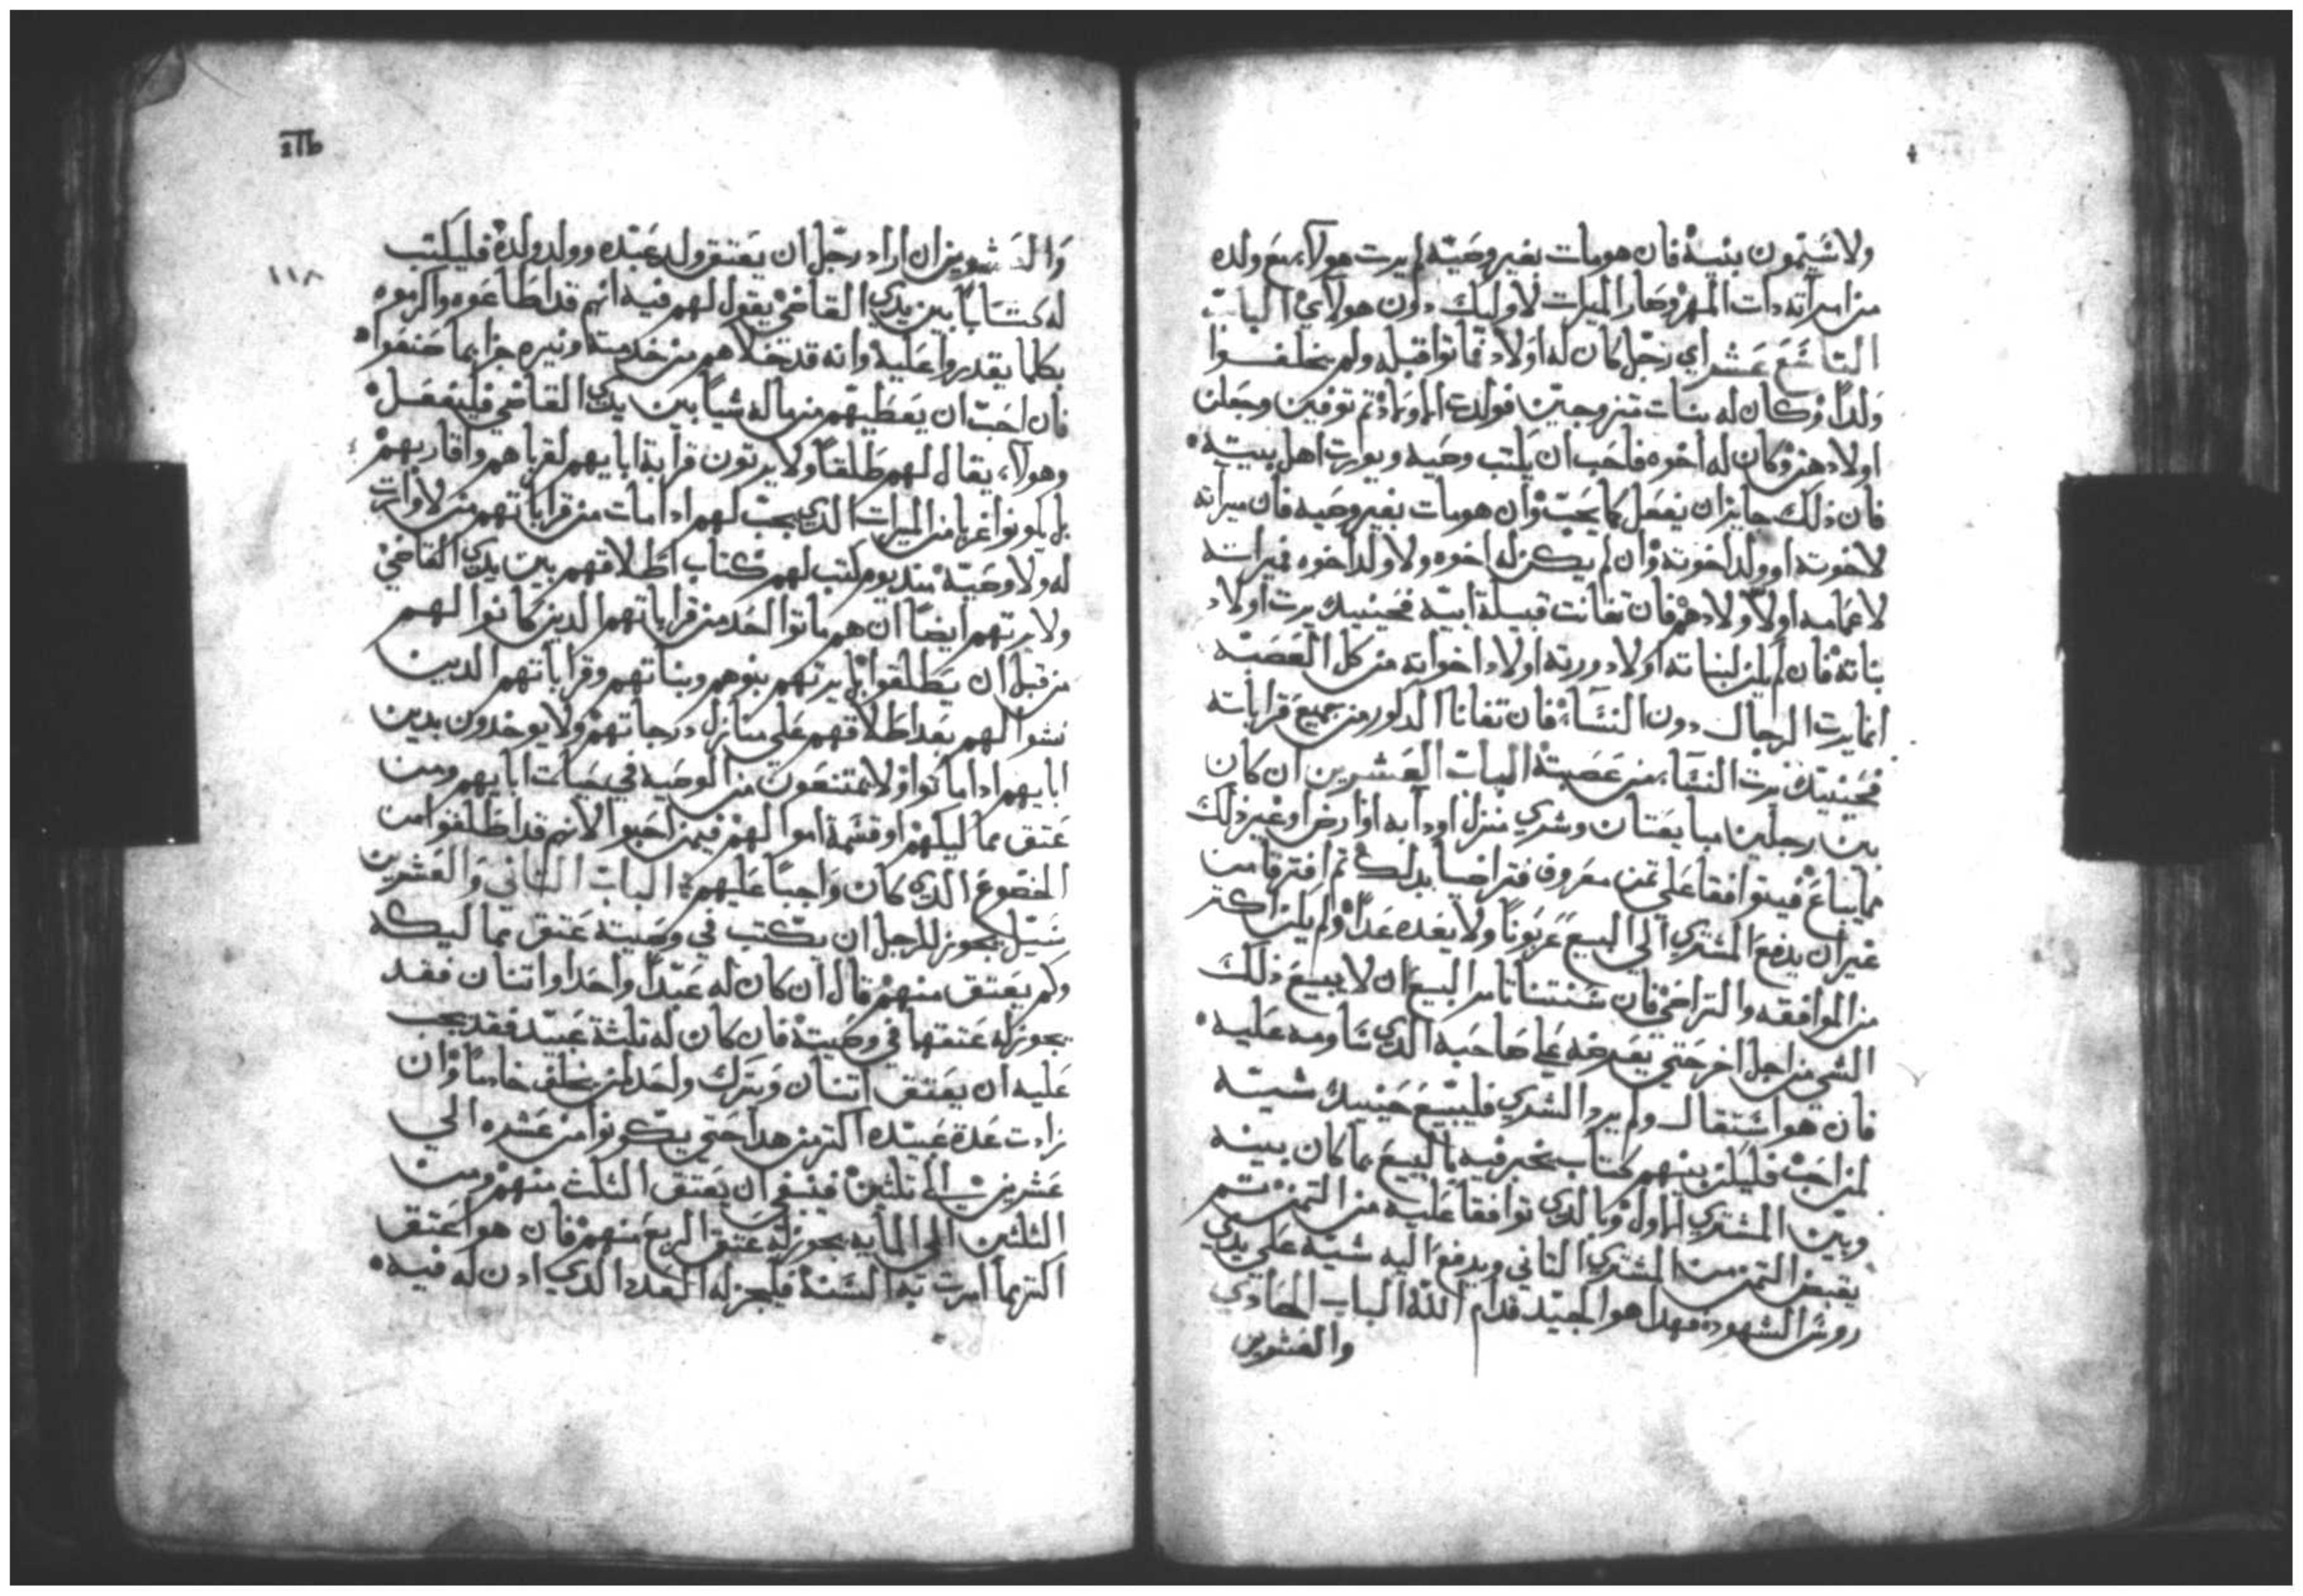 ولا شيتمون بنيه فان هو مات بغير وصيه لم يرت هولاء مع ولده
من امراته دات المهر وصار الميرات لاوليك دون هولاي الباب
التاسع عشر اي رجل كان له اولاد فماتوا قبله ولم يخلفوا
ولدا وكان له بنات متزوجين فولدت اولاد تم توفين وجعلن
اولادهن وكان له اخوه فاحب ان يكتب وصيه ويورت اهل بيته
فان ذلك جايز ان يفعل كما يحب وان هو مات بغير وصيه فان ميراته
لاخوته او ولد اخوته وان لم يكن له اخوه ولا ولد اخوه فميراته
لاعمامه او لاولادهم فان تفانت قبيلة ابيه فحينيد يرت اولاد
بناته فان لم يكن لبناته اولاد ورته اولاد اخواته من كل العصبه
انما يرت الرجال دون النساء فان تفانا الدكور من جميع قراباته
فحينيد يرت النساء من عصبته الباب العشرين ان كان
بين رجلين مبايعتان وشري منزل او دابه او ارض او غير ذلك
مما يباع فيتوافقا علي تمن معروف فتراضيا بدلك تم افترقا من
غير ان يدفع المشتري الي البيع عربونا ولا يعده عدا ولم يكن اكتر
من الموافقه والتراضي فان سنتنا تامر البيع ان لا يبيع ذلك
الشي من اجل اخر حتي يعرضه علي صاحبه الدي ساومه عليه
فان هو استقال ولم يرد الشري فليبيع حينيد شيه
لمن احب فليكن بينهم كتاب يخبر فيه بالبيع بما كان بينه
وبين المشتري الاول وبالدي توافقا عليه من التمن تم
يقبض التمن من المشتري التاني ويدفع اليه شيه علي يدي
روس الشهود فهدا هو الجيد قدام الله الباب الحادي
والعشرين
ⲥⲓⲏ
١١٨
والعشرين ان اراد رجل ان يعتق ولد عبده وولد ولده فليكتب
له كتابا بين يدي القاضي يقول لهم فيه انهم قد اطاعوه واكرموه
بكلما يقدروا عليه وانه قد تخلاهم من خدمته ونيره جزا بما صنعوا
فان احب ان يعطيهم من ماله شيا بين يدي القاضي فليفعل
وهولاء يقال لهم طلقا ولا يرتون قرابة ابايهم لقرباهم واقاربهم
بل يكونوا غربا من الميرات الدي يجب لهم ادا مات من قراباتهم من لا وارت
له ولا وصية مند يوم كتب لهم كتاب اطلاقهم بين يدي القاضي
ولا يرتهم ايضا ان هم ماتوا احد من قراباتهم الدين كانوا لهم
من قبل ان يطلقوا بل يرتهم بنوهم وبناتهم وقراباتهم الدين
نشوا لهم بعد اطلاقهم علي منازل درجاتهم ولا يوخدون بدين
ابايهم ادا ماتوا ولا يمتنعون من الوصيه في حياة ابايهم ومن
عتق مماليكهم او قسمة اموالهم فيمن احبوا لانهم قد اطلقوا من
الخضوع الدي كان واجبا عليهم الباب التاني والعشرين
سيل يجوز للرجل ان يكتب في وصيته عتق مماليكه
وكم يعتق منهم قال ان كان له عبدا واحدا او اتنان فقد
يجوز له عتقهما في وصيته فان كان له تلتة عبيد فقد يجب
عليه ان يعتق اتنان ويترك واحد لمن يخلف خادما وان
زادت عدة عبيده اكتر من هدا حتي يكونوا من عشره الي
عشرين الي تلتين فينبغي ان يعتق التلت منهم ومن
التلتين الي المايه يجوز له عتق الربع منهم فان هو اعتق
اكتر مما امرت به السنة فليجز له العدد الدي ادن له فيه